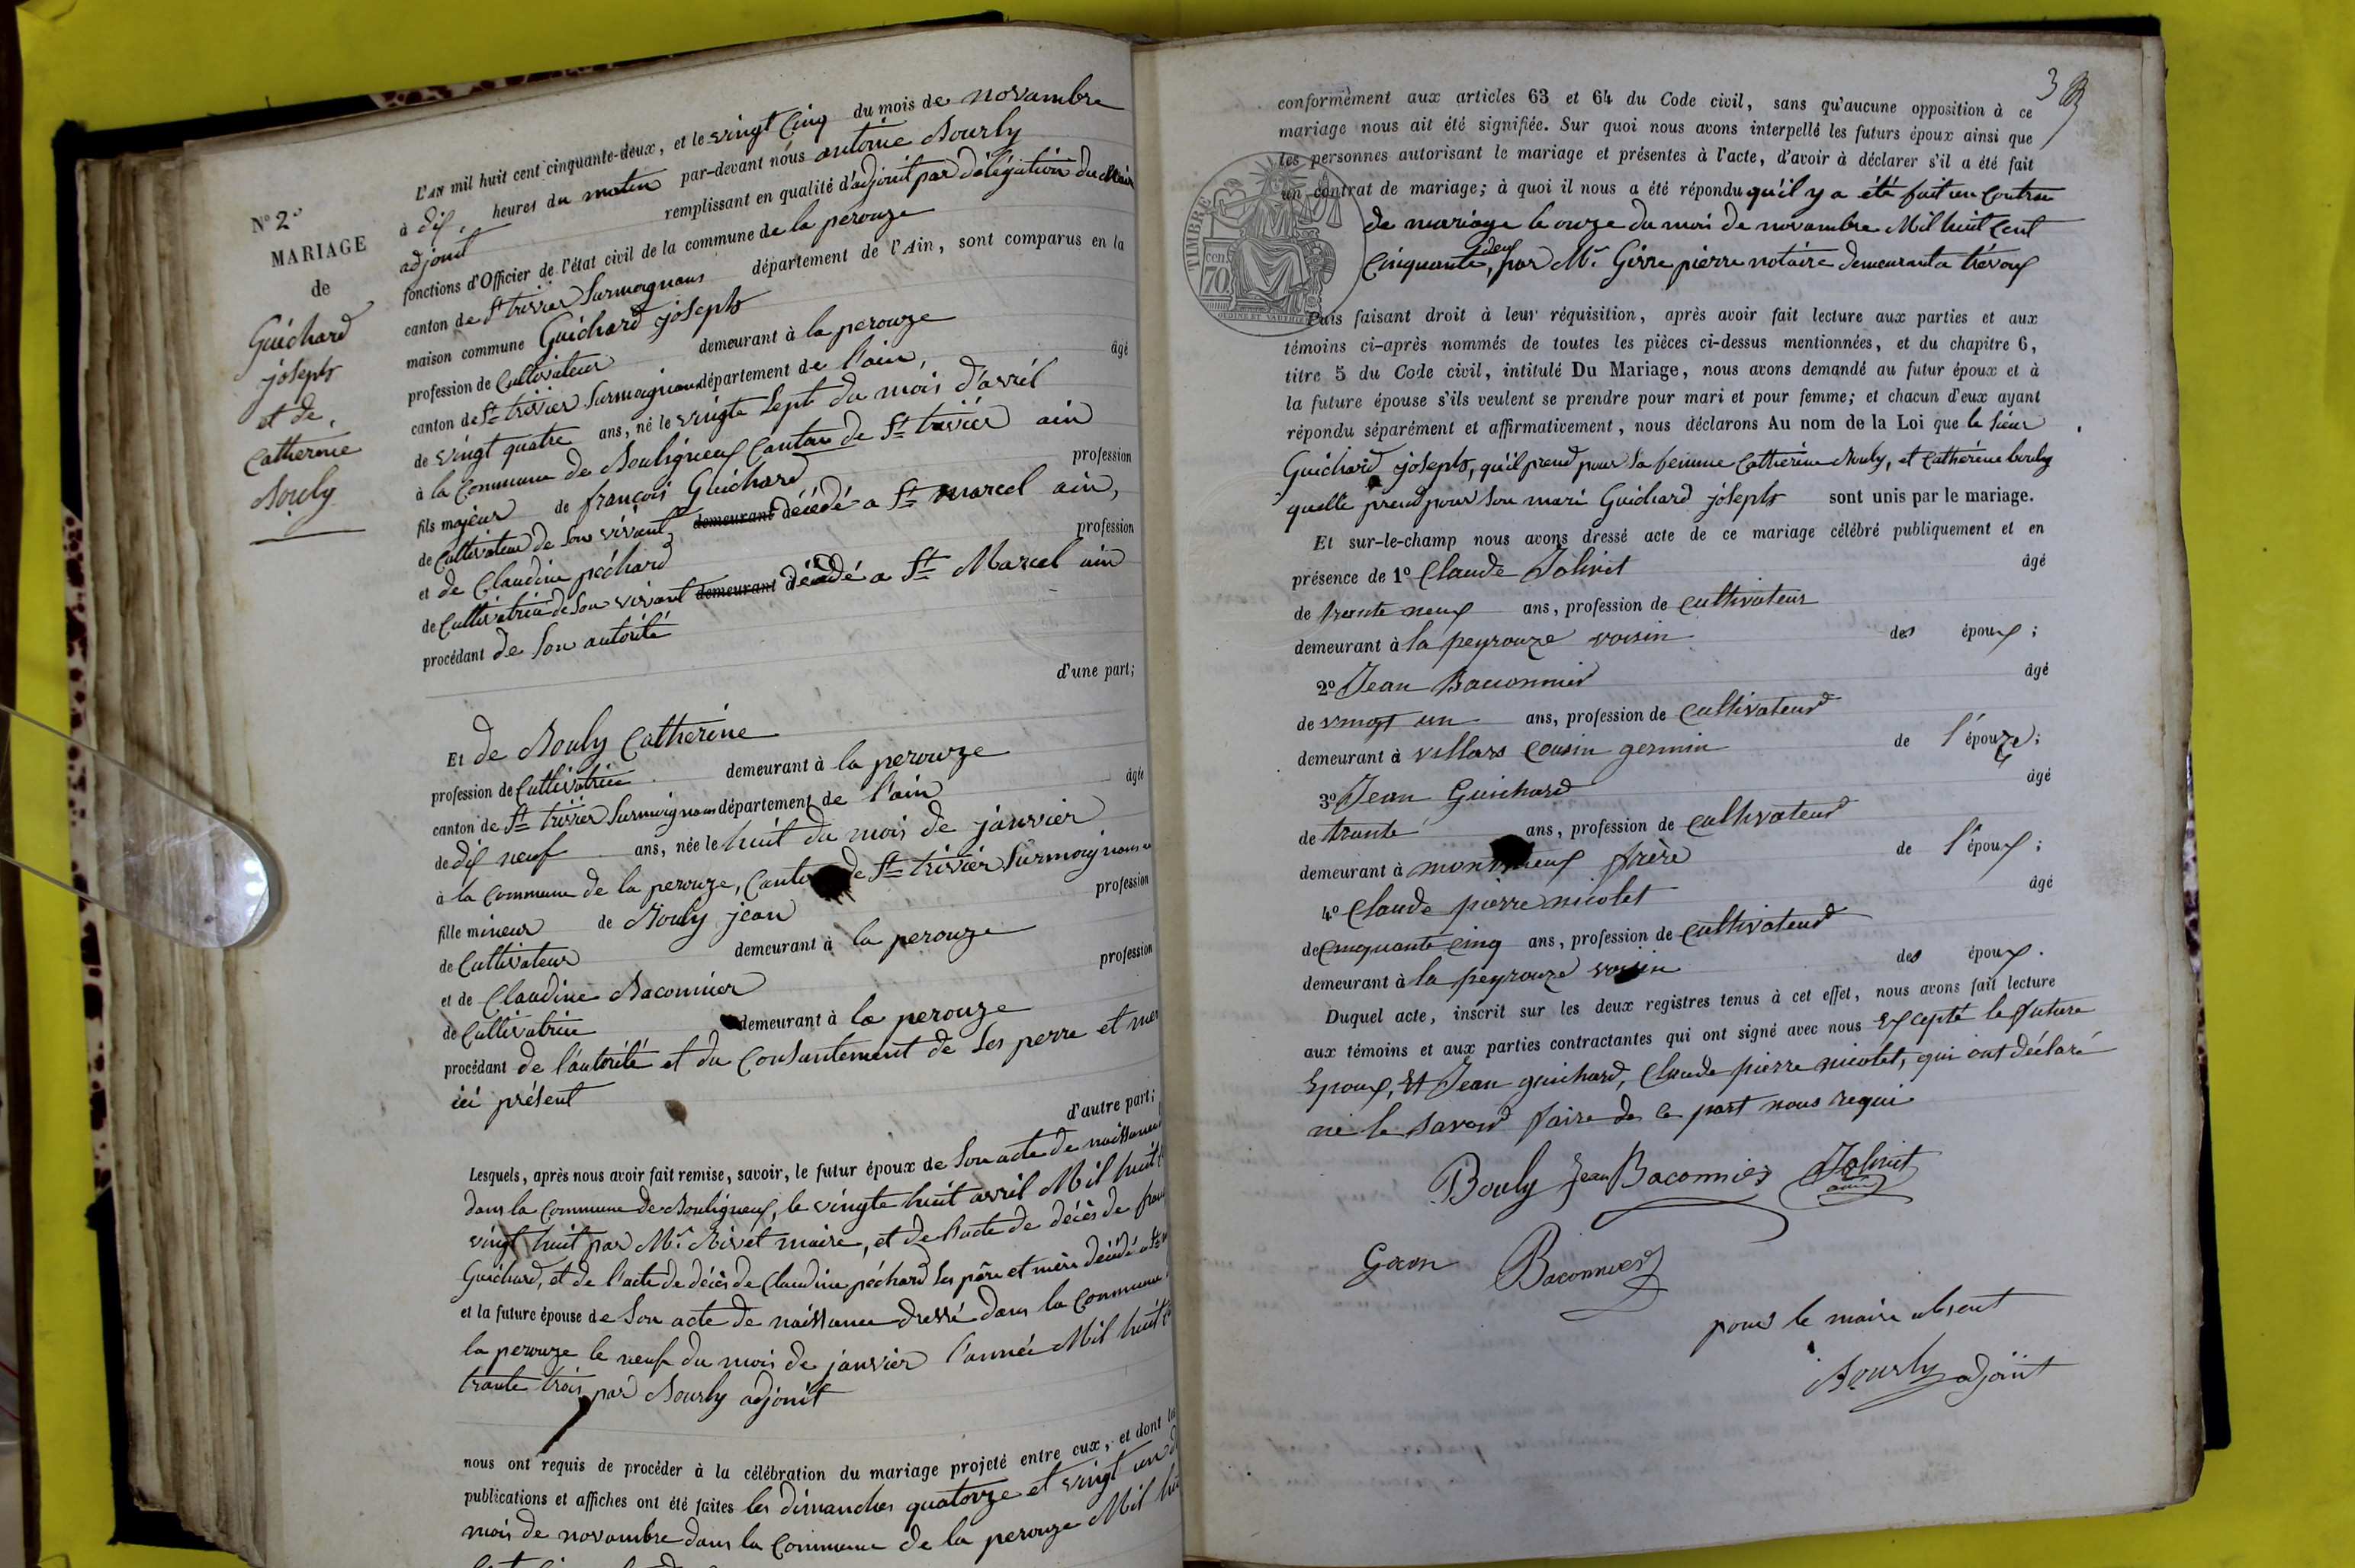 N° 2e
MARIAGE
de
Guichard
joseph
et de
Catherine
Bouly
L'AN mil huit cent cinquante-deux, et le vingt Cinq du mois de novambre
à dix, heures du matin par-devant nous antoine Bourly
adjoint remplissant en qualité d'adjoint par délégation du Maire
fonctions d'Officier de l'état civil de la commune de la perouze
canton de St trivier Surmoignans département de l'Ain, sont comparus en la
maison commune Guichard joseph
profession de Cultivateur demeurant à la perouze
canton de St trivier Surmoignans département de l'ain, âgé
de vingt quatre ans, né le vingte Sept du mois d'avril
à la Commune de Bouligneux Canton de St trivier ain
fils majeur de françois Guichard profession
de Cultivateur de Son vivant demeurant décédé a St marcel ain,
et de Claudine péchard profession
de Cultivatrice de Son vivant demeurant décédé a St Marcel ain
procédant de Son autorité
d'une part;
Et de Bouly Catherine
profession de Cultivatrice demeurant à la perouze
canton de St trivier Surmoignans département de l'ain âgée
de dix neuf ans, née le huit du mois de janvier
à la Commune de la perouze, Canton de St trivier Surmoignans
fille mineur de Bouly jean profession
de Cultivateur demeurant à la perouze
et de Claudine Baconnier profession
de Cultivatrice demeurant à la perouze
procédant de l'autorité et du Consantement de Ses perre et mer
ici présent
d'autre part;
Lesquels, après nous avoir fait remise, savoir, le futur époux de Son acte de naissance
dans la Commune de Bouligneux, le vingte huit avril Mil huit
vingt huit par Mr. Rivet maire, et de l'acte de décès de
Guichard, et de l'acte de décès de Claudine péchard Ses père et mère décédé
et la future épouse de Son acte de naissance dressé dans la Commune
la perouze le neuf du mois de janvier l'année Mil huit
trante trois par Bourly adjoint
nous ont requis de procéder à la célébration du mariage projeté entre eux, et dont les
publications et affiches ont été faites les dimanches quatorze et vingt un
mois de novambre dans la Commune de la perouze Mil
conformément aux articles 63 et 64 du Code civil, sans qu'aucune opposition à ce
mariage nous ait été signifiée. Sur quoi nous avons interpellé les futurs époux ainsi que
les personnes autorisant le mariage et présentes à l'acte, d'avoir à déclarer s'il a été fait
un contrat de mariage; à quoi il nous a été répondu qu'il y a été fait un Contrat
de mariage le onze du mois de novambre Mil huit Cent
Cinquante deux, par Mr. Girre pierre notaire demeurant a trévoux
TIMBRE
70 cen.
Puis faisant droit à leur réquisition, après avoir fait lecture aux parties et aux
témoins ci-après nommés de toutes les pièces ci-dessus mentionnées, et du chapitre 6,
titre 5 du Code civil, intitulé Du Mariage, nous avons demandé au futur époux et à
la future épouse s'ils veulent se prendre pour mari et pour femme; et chacun d'eux ayant
répondu séparément et affirmativement, nous déclarons Au nom de la Loi que le Sieur
Guichard joseph, qu'il prend pour Sa femme Catherine Bouly, et Catherine bouly
quelle prend pour Son mari Guichard joseph sont unis par le mariage.
Et sur-le-champ nous avons dressé acte de ce mariage célébré publiquement et en
présence de 1° Claude Jolivet âgé
de trante neuf ans, profession de cultivateur
demeurant à la peyrouze voisin des époux;
2° Jean Baconnier âgé
de vingt un ans, profession de Cultivateur
demeurant à villars cousin germin de l'épouze;
3° Jean Guichard âgé
de trante ans, profession de cultivateur
demeurant à frère de l'époux;
4° Claude pierre nicolet âgé
de Cinquante cinq ans, profession de cultivateur
demeurant à la peyrouze voisin des époux.
Duquel acte, inscrit sur les deux registres tenus à cet effet, nous avons fait lecture
aux témoins et aux parties contractantes qui ont signé avec nous Excepté le future
Epoux, Et Jean guichard, Claude pierre nicolet, qui ont déclaré
ne le savoir faire de ce part nous requi
Bouly Jean Baconnier Jolivet
Baconnier
pour le maire absent
Bourly adjoint